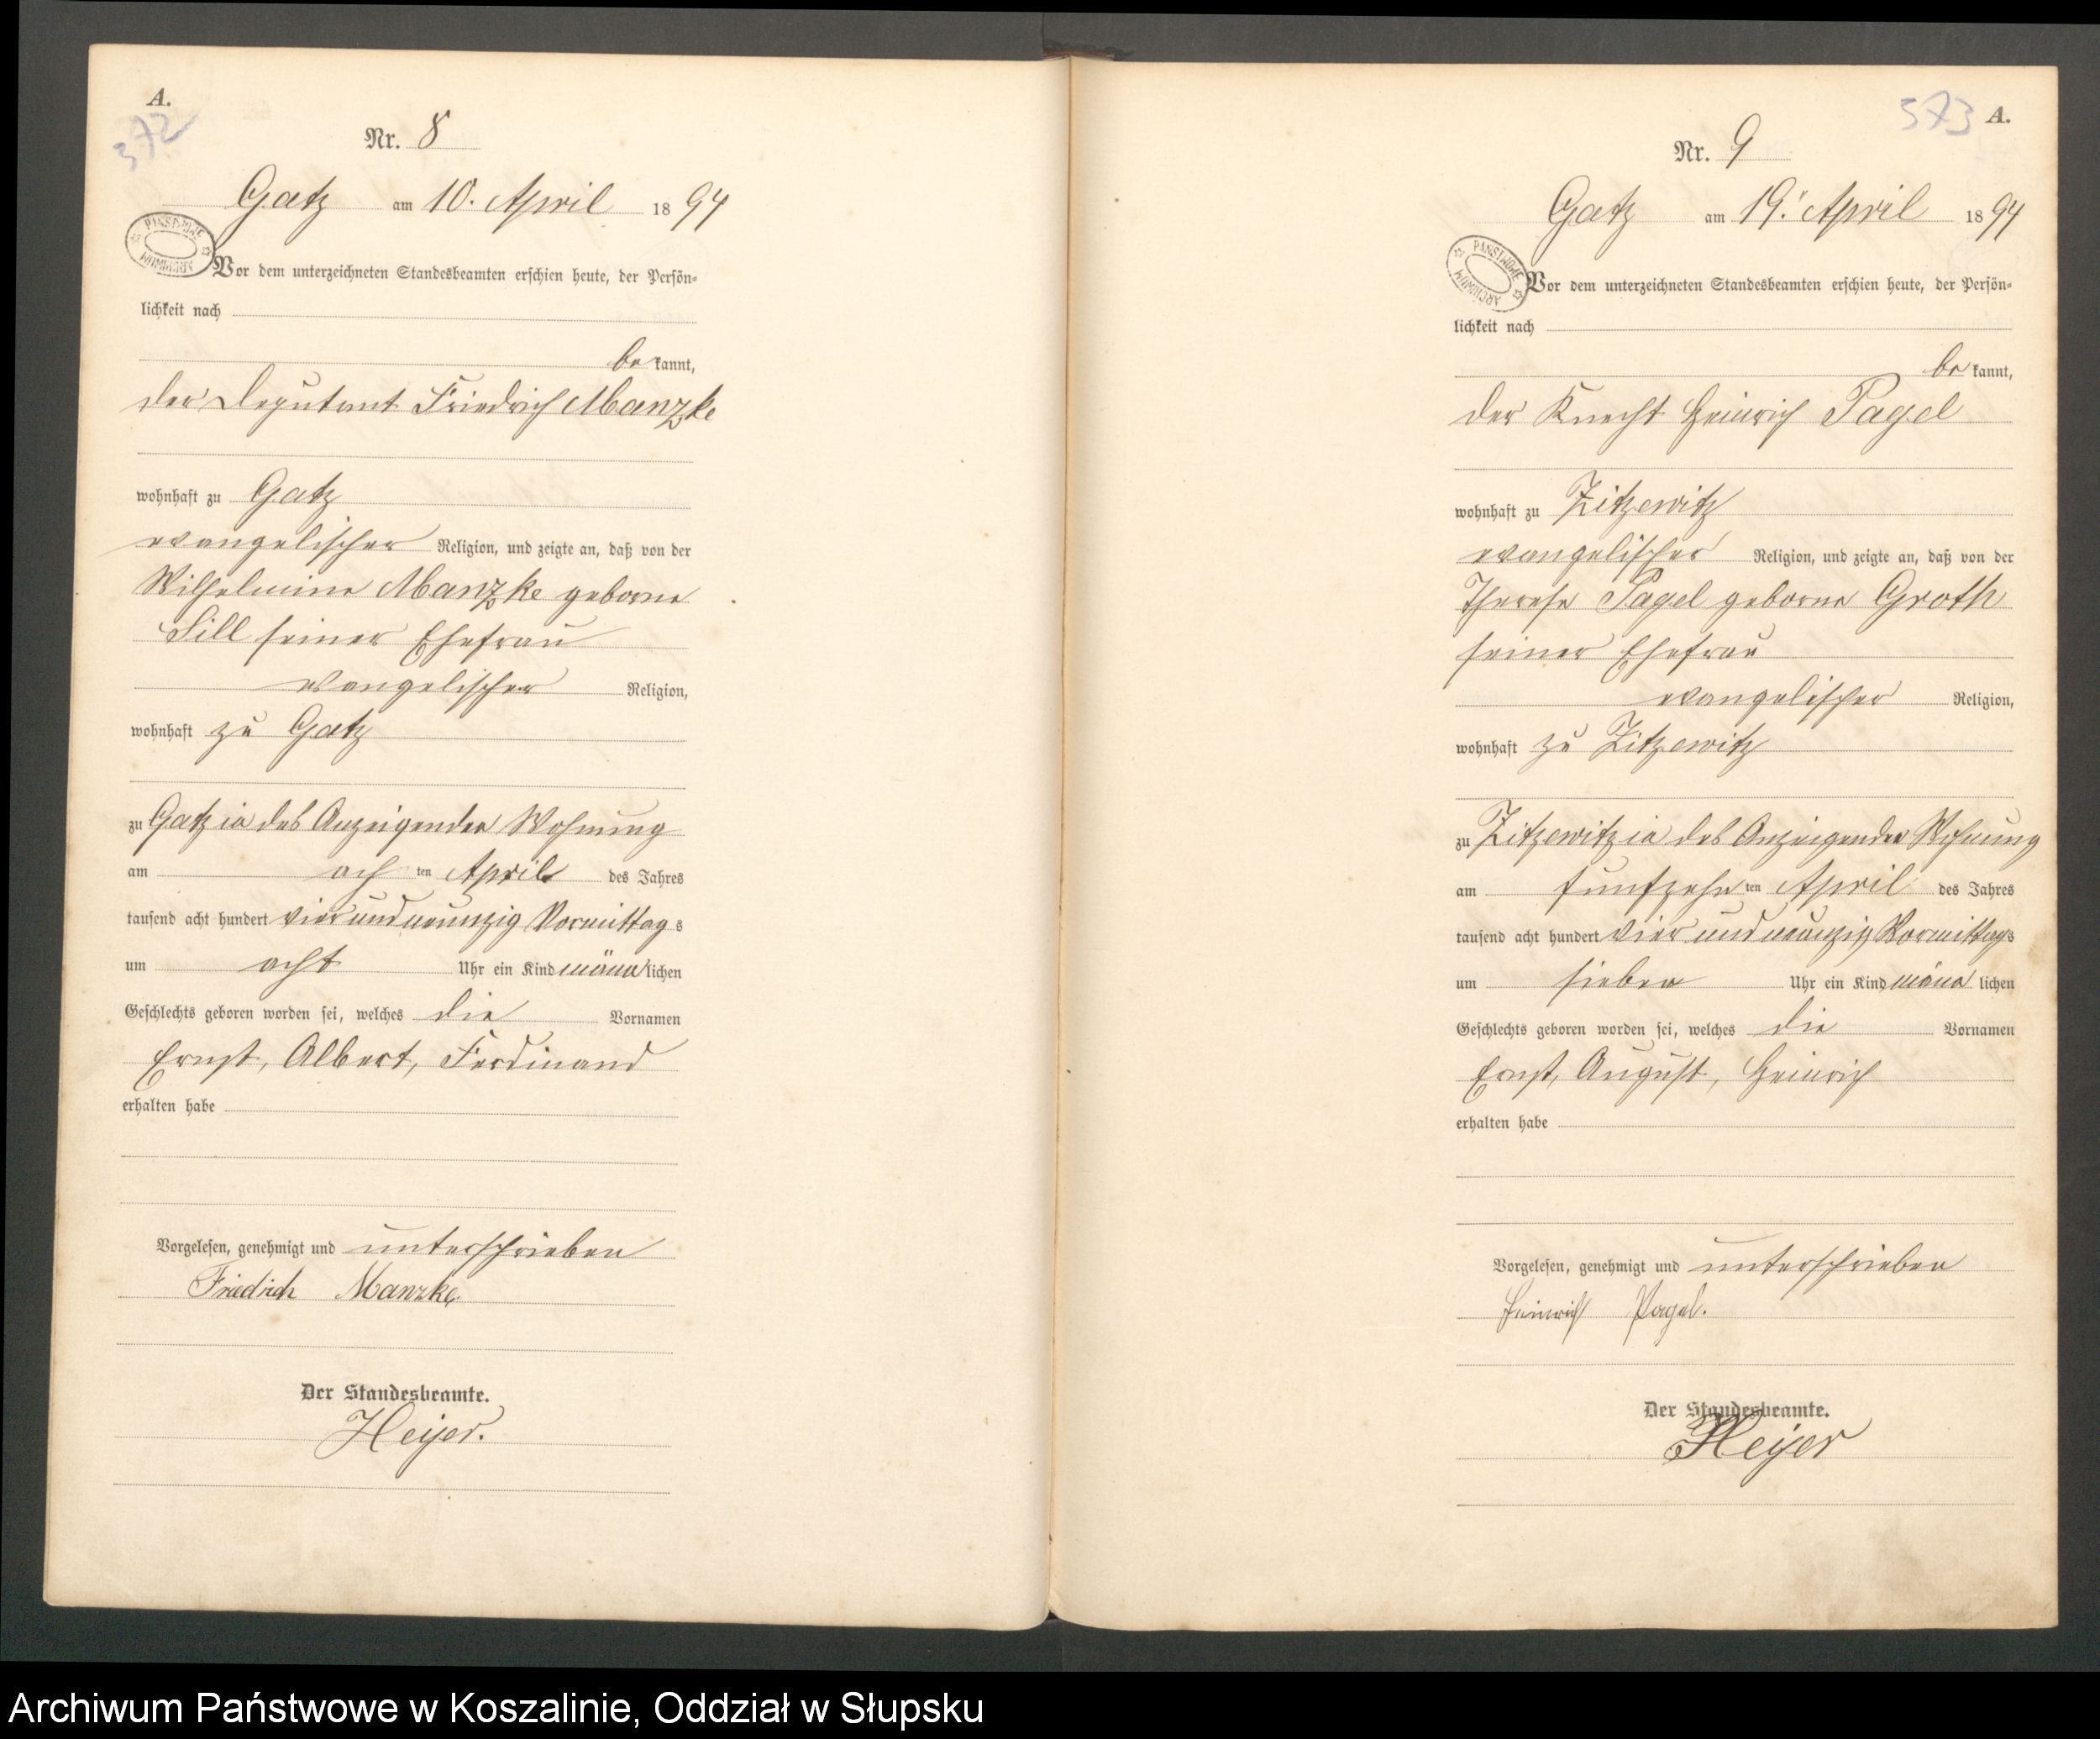 A.
372
Nr. 8
Gatz am 10. April 1894
PAŃSTWOWE ARCHIWUM
Vor dem unterzeichneten Standesbeamten erschien heute, der Persön-
lichkeit nach
bekannt,
der Deputant Friedrich Manzke
wohnhaft zu Gatz
evangelischer Religion, und zeigte an, daß von der
Wilhelmine Manzke geborne
Sill seiner Ehefrau
evangelischer Religion,
wohnhaft zu Gatz
zu Gatz in des Anzeigenden Wohnung
am achten April des Jahres
tausend acht hundert vierundneunzig Vormittags
um acht Uhr ein Kind männlichen
Geschlechts geboren worden sei, welches die Vornamen
Ernst, Albert, Ferdinand
erhalten habe
Vorgelesen, genehmigt und unterschrieben
Friedrich Manzke
Der Standesbeamte.
Heyer.
573 A.
Nr. 9
Gatz am 19. April 1894
PAŃSTWOWE ARCHIWUM
Vor dem unterzeichneten Standesbeamten erschien heute, der Persön-
lichkeit nach
bekannt,
der Knecht Heinrich Pagel
wohnhaft zu Zitzewitz
evangelischer Religion, und zeigte an, daß von der
Therese Pagel geborne Groth
seiner Ehefrau
evangelischer Religion,
wohnhaft zu Zitzewitz
zu Zitzewitz in des Anzeigenden Wohnung
am funfzehnten April des Jahres
tausend acht hundert vierundneunzig Vormittags
um sieben Uhr ein Kind männlichen
Geschlechts geboren worden sei, welches die Vornamen
Ernst, August, Heinrich
erhalten habe
Vorgelesen, genehmigt und unterschrieben
Heinrich Pagel.
Der Standesbeamte.
Heyer
Archiwum Państwowe w Koszalinie, Oddział w Słupsku